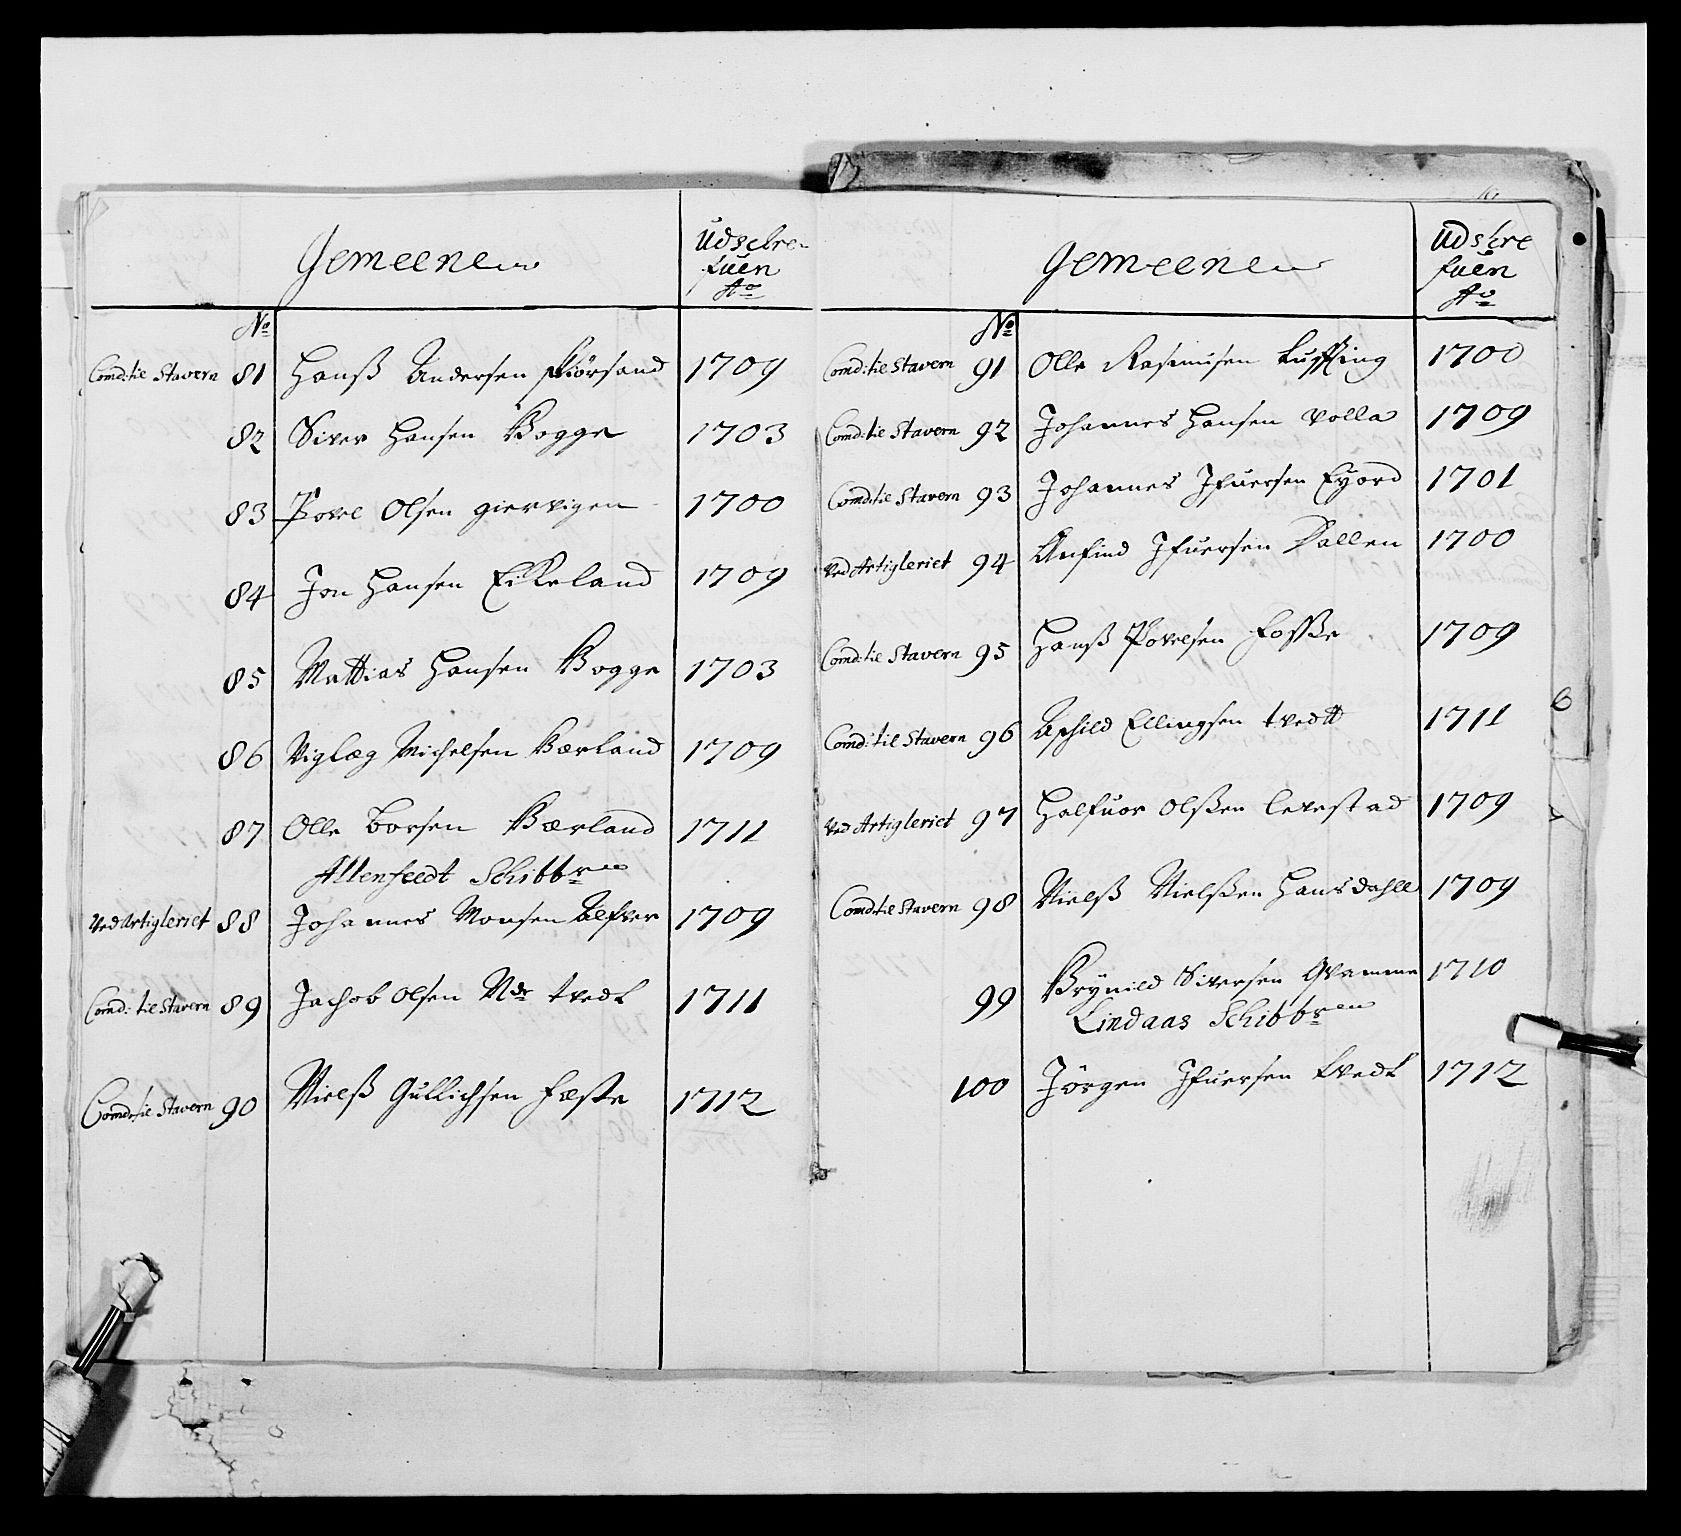 Gemeene
Udschre
fuen
Ao
No
Comd: til Stavern 81 Hanß Andersen Kiörsand 1709
82 Siver Hansen Bogge 1703
83 Povel Olsen giervigen 1700
84 Jon Hansen Eikeland 1709
85 Mattias Hansen Bogge 1703
86 Viglæg Michelsen Bærland 1709
87 Olle Borsen Bærland 1711
Allenfeedt Schibbren
Ved Artigleriet 88 Johannes Monsen Alfver 1709
Comd: til Stavern 89 Jachob Olsen Ndr tvedt 1711
Comd: til Stavern 90 Nielß Gullichsen Fæste 1712
Gemeene
Udskre
fuen
Ao
No
Comd: til Stavern 91 Olle Rasmusen 1700
Comd: til Stavern 92 Johannes Hansen Volla 1709
Comd: til Stavern 93 Johannes Ifuersen Eyord 1701
Ved Artigleriet 94 Anfind Ifuersen Dallen 1700
Comd: til Stavern 95 Hanß Povelsen Fosse 1709
Comd: til Stavern 96 Ellingsen tvedtt 1711
Ved Artigleriet 97 Halfuor Olßen levestad 1709
Comd: til Stavern 98 Nielß Nielßen Hansdahll 1709
99 Brynild Siversen Qvamme 1710
Lindaas Schibbren
100 Jörgen Ifuersen tvedt 1712